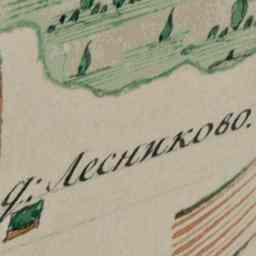 д: Лесниково.